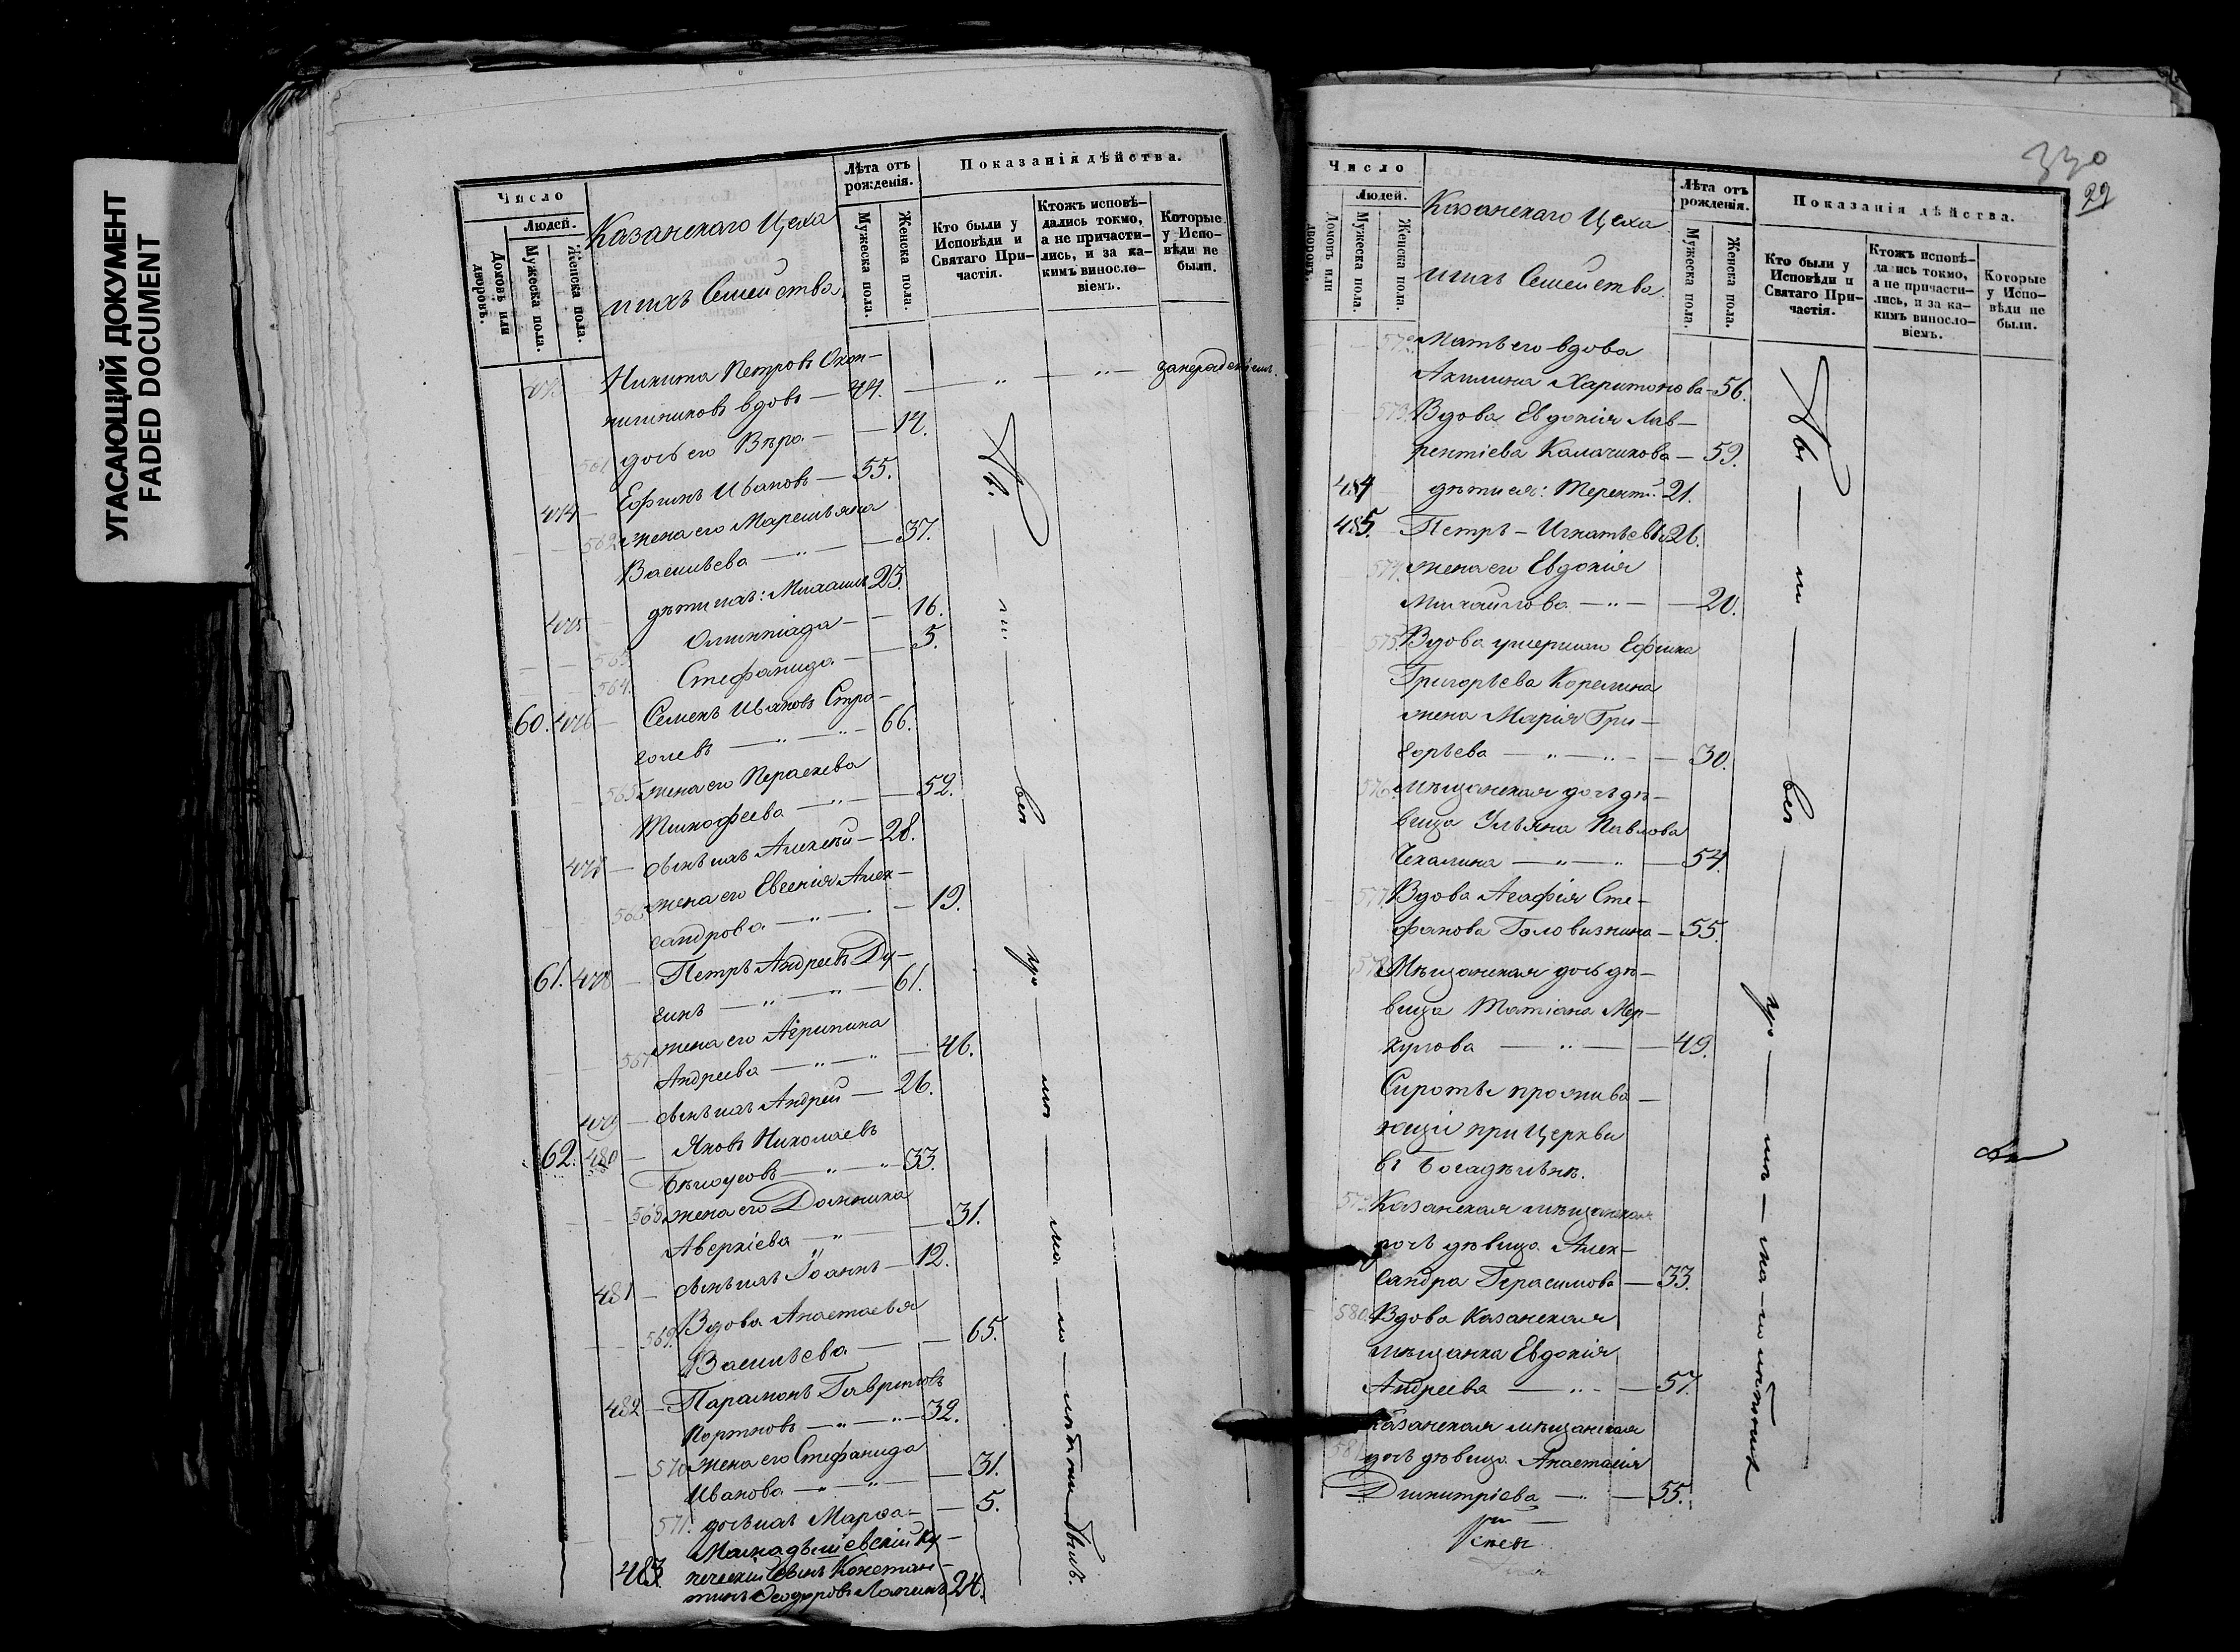 УГАСАЮЩИЙ ДОКУМЕНТ
FADED DOCUMENT
Число
Людей.
Домовъ или дворовъ.
Мужеска пола.
Женска пола.
Казанскаго Цеха
и ихъ Семейства
Лѣта отъ рожденія.
Мужеска пола.
Женска пола.
Показанія дѣйства.
Кто были у Исповѣди и Святаго Причастія.
Ктожъ исповѣдались токмо, а не причастились, и за какимъ винословіемъ.
Которые у Исповѣди не были.
473 — Никита Петровъ Охот-
никовъ вдовъ — 44.
561 дочь его Вѣра — 14.
474 — Ефимъ Ивановъ — 55.
562 жена его Маремьяна
Васильева — 37.
475 дѣти ихъ: Михаилъ 23.
563. Олимпіада — 16.
564. Стефанида — 5.
60. 476 — Семенъ Ивановъ Стро-
голевъ — 66.
565 жена его Параскева
Тимофеева — 52.
477 — сынъ ихъ Алексѣй — 28.
566 жена его Евгенія Алек-
сандрова — 19.
61. 478 — Петръ Андреевъ Ду-
гинъ — 61.
567 жена его Агрипина
Андреева — 46.
479 — сынъ ихъ Андрей — 26.
62. 480 — Яковъ Николаевъ
Бѣлоусовъ — 33.
568 жена его Домника
Аверкіева — 31.
481 — сынъ ихъ Іоаннъ — 12.
569. Вдова Анастасья
Васильева — 65.
482 — Парамонъ Гавриловъ
Портновъ — 32.
570 жена его Стефанида
Иванова — 31.
571. дочь ихъ Марѳа — 5.
Малмадышевскій Ку-
483. печескій Сынъ Констан-
тинъ Ѳеодоровъ 24.
330
29
Число
Людей.
Домовъ или дворовъ.
Мужеска пола.
Женска пола.
Казанскаго Цеха
и ихъ Семейства
Лѣта отъ рожденія.
Мужеска пола.
Женска пола.
Показанія дѣйства.
Кто были у Исповѣди и Святаго Причастія.
Ктожъ исповѣдались токмо, а не причастились, и за какимъ винословіемъ.
Которые у Исповѣди не были.
572. Мать его вдова
Акилина Харитонова — 56.
573. Вдова Евдокія Лав-
рентіева Калачикова — 59.
484 дѣти ея: Терентій 21.
485. Петръ — Игнатьевы 26.
574. жена его Евдокія
Михайлова — 20.
575. Вдова умершаго Ефима
Григорьева Корелина
жена Марія Гри-
горьева — 30.
576. Мѣщанская дочь дѣ-
вица Ульяна Павлова
Чекалина — 54.
577. Вдова Агафія Сте-
фанова Головизнина — 55.
578. Мѣщанская дочь дѣ-
вица Татіана Мер-
кулова — 49.
Сироты прожива-
ющіи при Церкви
въ Богадѣльнѣ.
579. Казанская мѣщанская
дочь дѣвица Алек-
сандра Герасимова — 33.
580. Вдова Казанская
мѣщанка Евдокія
Андреева — 57.
Казанская мѣщанская
581 дочь дѣвица Анастасія
Димитріева — 55.